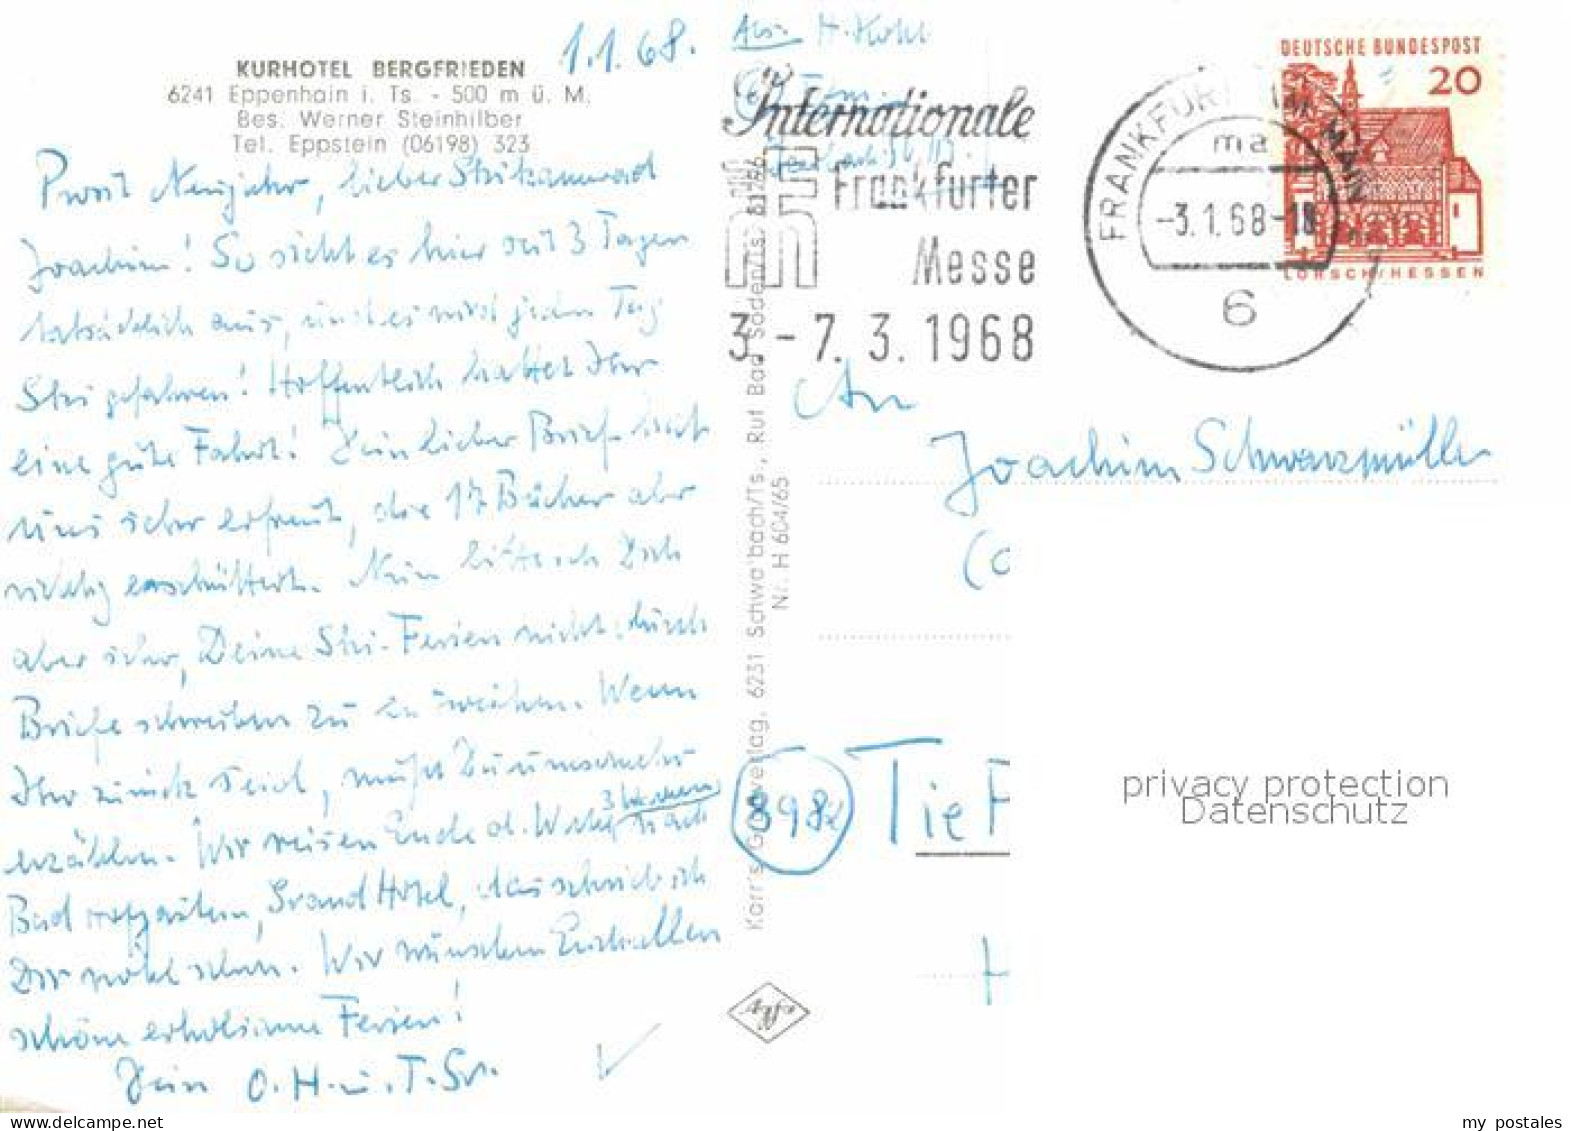 KURHOTEL BERGFRIEDEN
6241 Eppenhain i. Ts. - 500 m ü. M.
Bes. Werner Steinhilber
Tel. Eppstein (06198) 323
1.1.68.
Prosit Neujahr, lieber Skikamerad
Joachim! So sieht es hier seit 3 Tagen
tatsächlich aus, und es wird jeden Tag
Ski gefahren! Hoffentlich hattet Ihr
eine gute Fahrt! Dein lieber Brief hat
uns sehr erfreut, die 17 Bücher aber
richtig erschüttert. Nun bitte ich Dich
aber sehr, Deine Ski-Ferien nicht durch
Briefe schreiben zu Wenn
Ihr zurück seid, mußt Du umsomehr
erzählen. Wir reisen Ende d. Woche 3 Wochen nach
Bad Hofgastein, Grand Hotel, das schrieb ich
Dir wohl schon. Wir wünschen Euch allen
schöne erholsame Ferien!
Dein O. H. u. T. Gr.
Abs. H. Kohl
Internationale
Frankfurter
Messe
3.-7.3.1968
FRANKFURT AM MAIN
ma
-3.1.68-18
6
DEUTSCHE BUNDESPOST
20
LORSCH/HESSEN
Karr's Verlag, 6231 Schwa'bach/Ts., Ruf Bad Soden/Ts. 81266
Nr. H 604/65
An
Joachim Schwarzmüller
(c
8982 Tief
H
privacy protection
Datenschutz
my postales